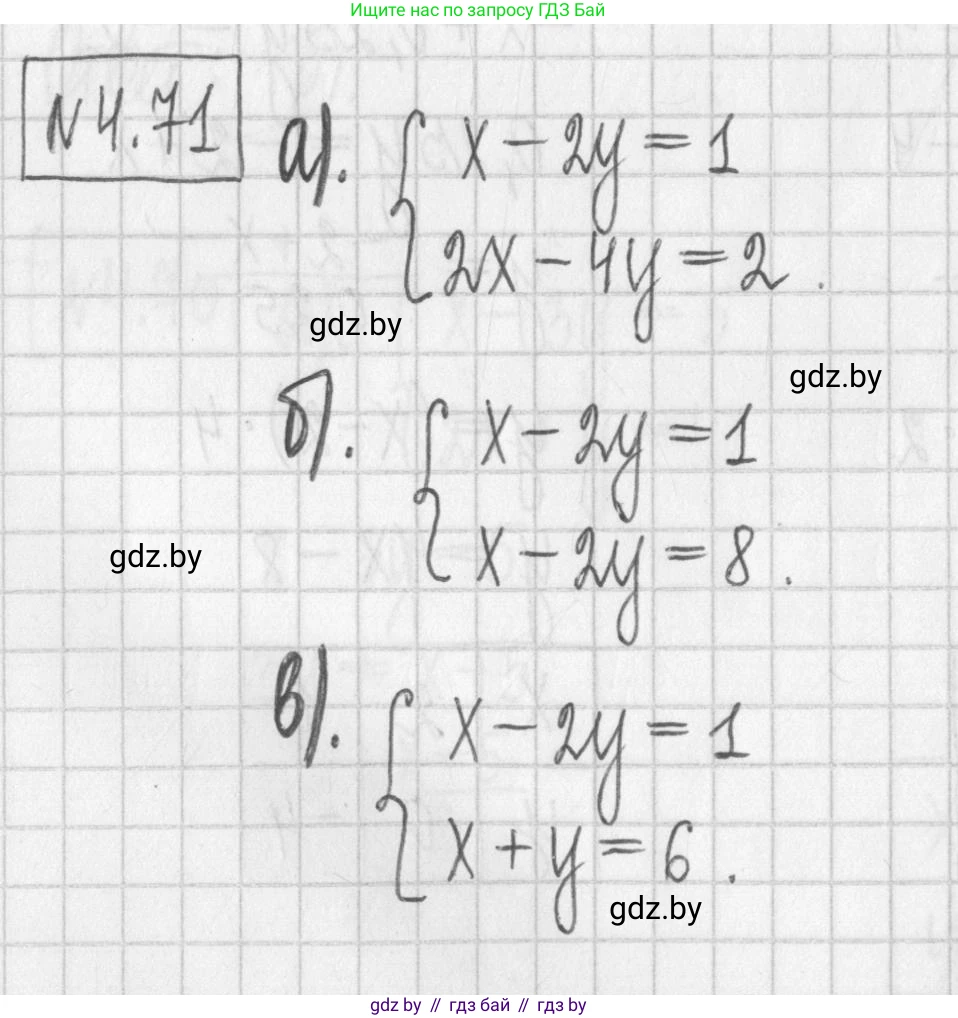 Ищите нас по запросу ГДЗ Бай
N 4.71
а). { x - 2y = 1
2x - 4y = 2.
gdz.by
gdz.by
б). { x - 2y = 1
x - 2y = 8.
gdz.by
в). { x - 2y = 1
x + y = 6.
gdz.by
gdz.by // гдз бай // гдз by